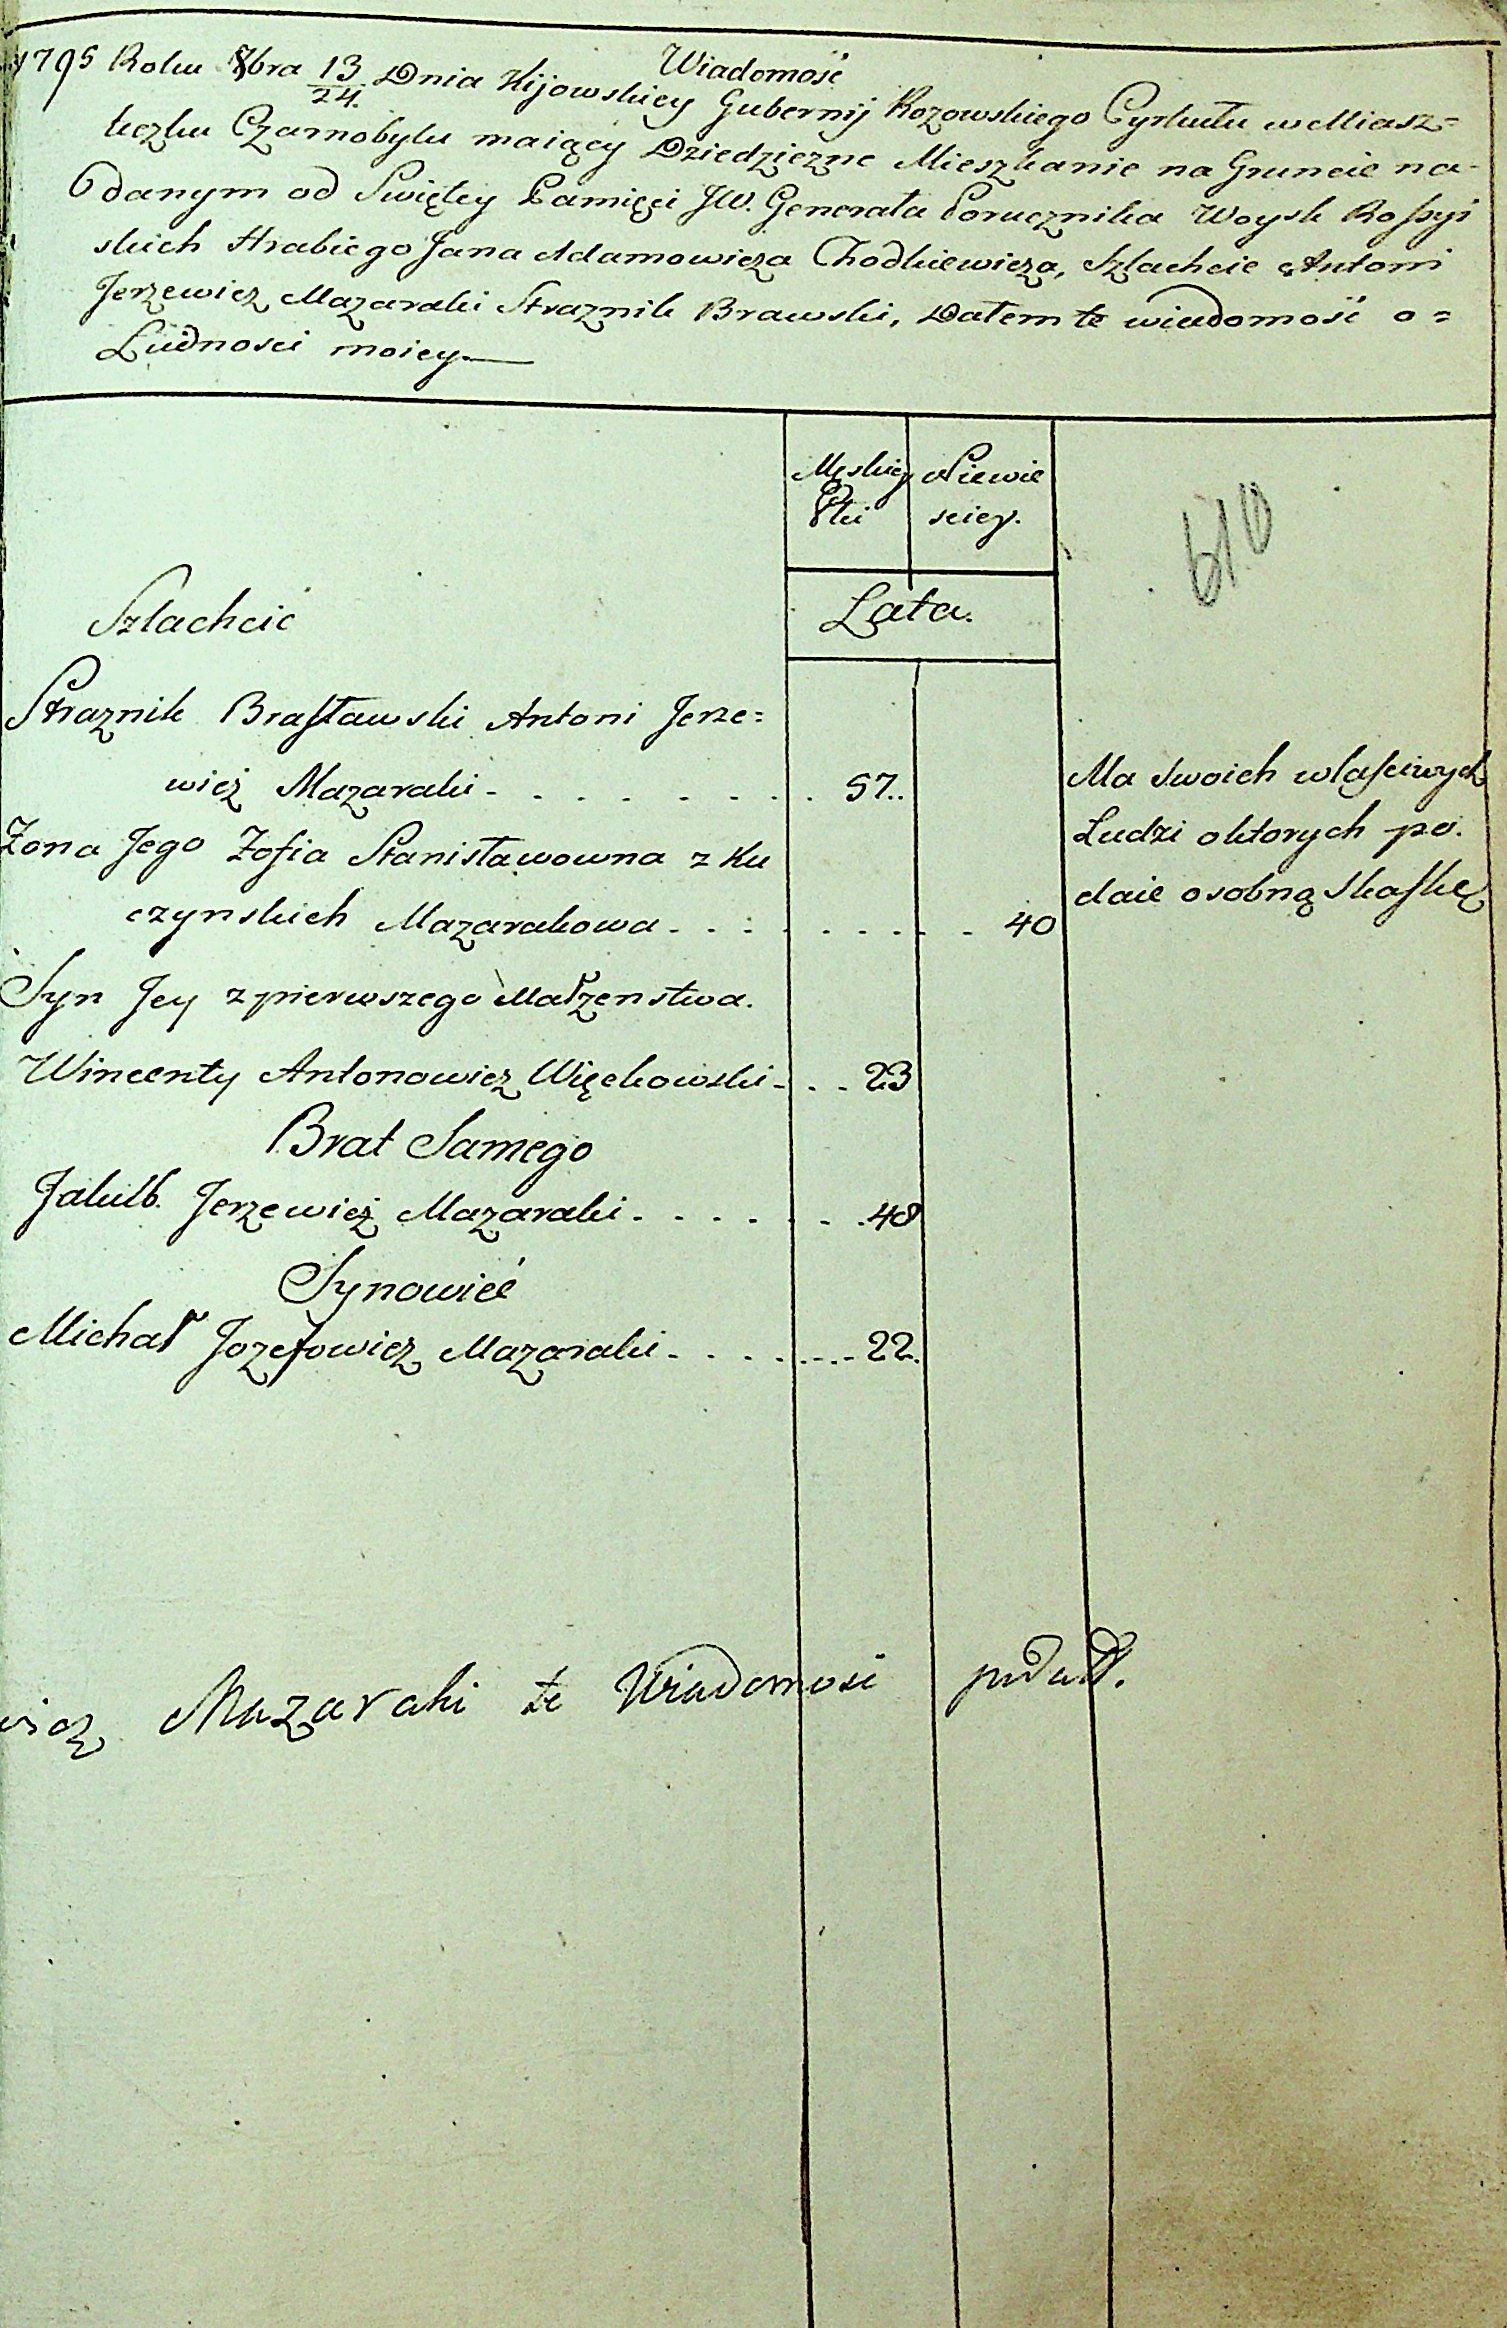 Wiadomość
1795 Roku 8bra 13/24. Dnia Kijowskiey Gubernij Rozowskiego Cyrkułu w Miasz=
teczku Czarnobylu maiący Dziedziczne Mieszkanie na Gruncie na-
danym od Swiętey Pamięci JW. Generała Porucznika Woysk Roſsyi
skich Hrabiego Jana Adamowicza Chodkiewicza, Szlachcic Antoni
Jerzewicz Mazaraki Straznik Brawski, Dałem te wiadomość o=
Ludnosci moiey.
Męskiey Niewie
Płci sciey.
610
Szlachcic
Lata.
Straznik Brasławski Antoni Jerze=
wicz Mazaraki - . . . . . . . . 57..
Ma Swoich właſciwych
Zona Jego Zofia Stanisławowna z Ku
Ludzi oktorych po.
czynskich Mazarakowa . . . . . . . . . 40
daie osobną Skaſkę
Syn Jey z pierwszego Małzenstwa.
Wincenty Antonowicz Więckowski - . . 23
Brat Samego
Jakub. Jerzewicz Mazaraki . . . . . . . 48
Synowiec
Michał Jozefowicz Mazaraki - . . . . . . . 22.
wicz Mazaraki te Wiadomosc podałł.